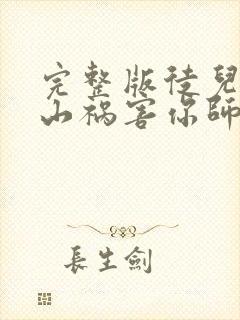 完整版徒兒
山禍害你師
長生劍